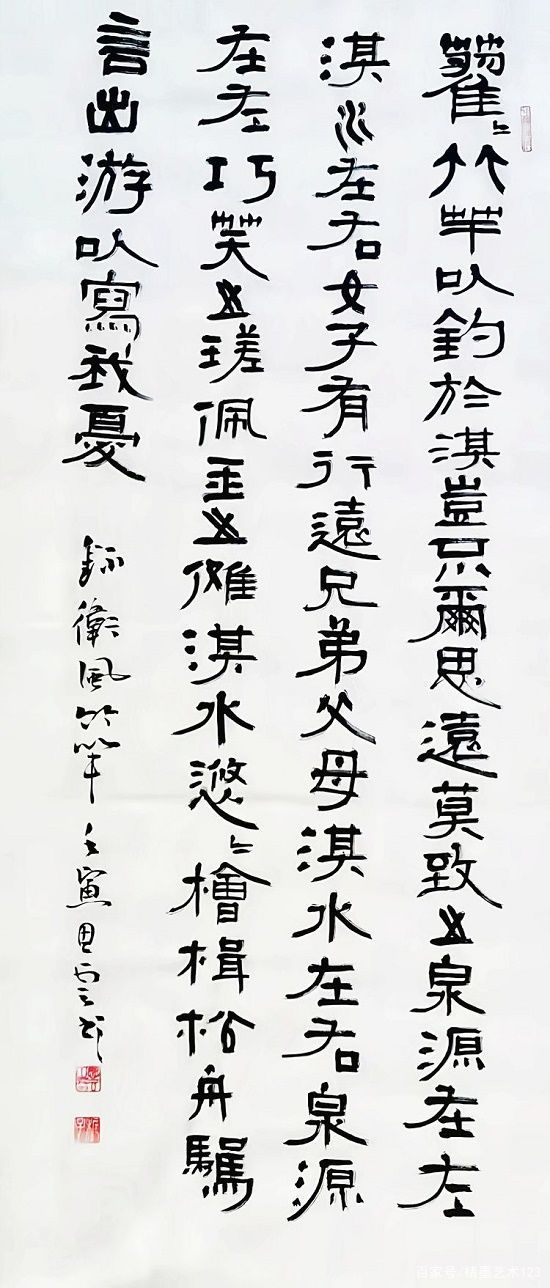 籊〻竹竿以釣於淇豈不爾思遠莫致之泉源在左
淇水在右女子有行遠兄弟父母淇水在右泉源
在左巧笑之瑳佩玉之儺淇水滺〻檜楫松舟駕
言出游以寫我憂
錄衛風竹竿 壬寅思雲书
百家号/精墨艺术123